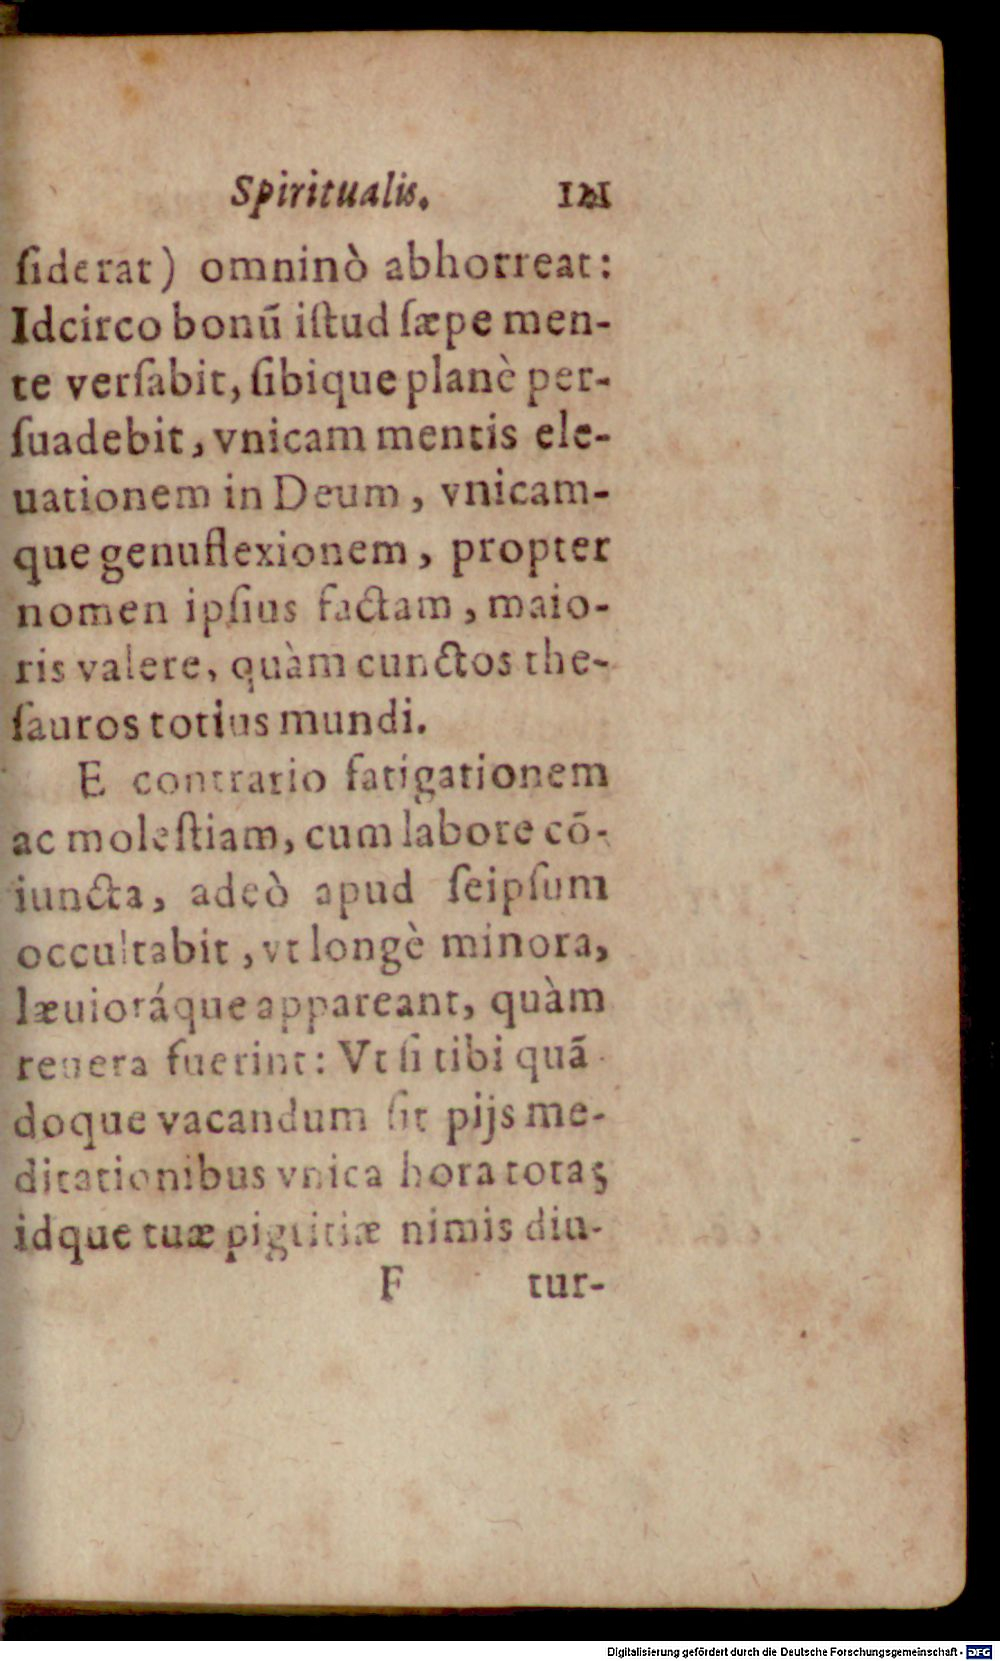 Spiritualis. 121
ſiderat) omninò abhorreat:
Idcirco bonũ iſtud ſæpe men-
te verſabit, ſibique planè per-
ſuadebit, vnicam mentis ele-
uationem in Deum, vnicam-
que genuflexionem, propter
nomen ipſius factam, maio-
ris valere, quàm cunctos the-
ſauros totius mundi.
E contrario fatigationem
ac moleſtiam, cum labore cõ-
iuncta, adeò apud ſeipſum
occultabit, vt longè minora,
læuioráque appareant, quàm
reuera fuerint: Vt ſi tibi quã
doque vacandum ſit pijs me-
ditationibus vnica hora tota;
idque tuæ pigritiæ nimis diu-
F tur-
Digitalisierung gefördert durch die Deutsche Forschungsgemeinschaft - DFG